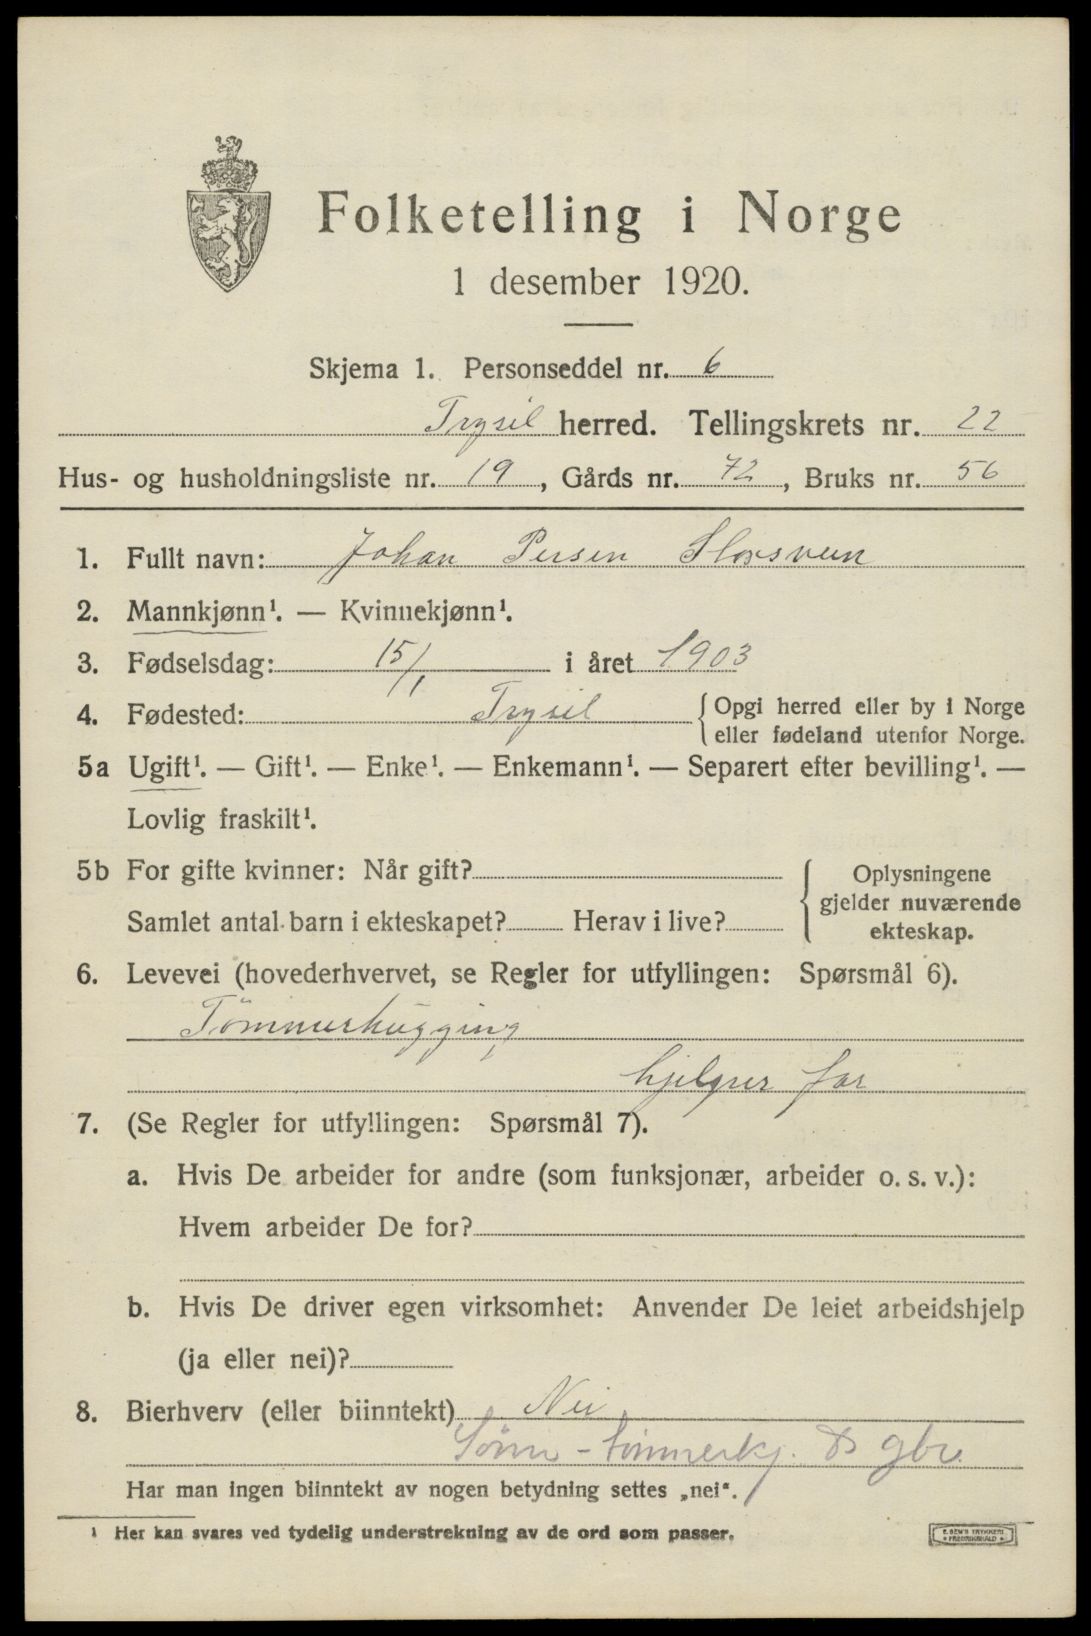 Folketelling i Norge
1 desember 1920.
Skjema 1. Personseddel nr. 6
Trysil herred. Tellingskrets nr. 22
Hus- og husholdningsliste nr. 19, Gårds nr. 72, Bruks nr. 56
1. Fullt navn: Johan Persen Storsveen
2. Mannkjønn¹. — Kvinnekjønn¹.
3. Fødselsdag: 15/1 i året 1903
4. Fødested: Trysil {Opgi herred eller by i Norge
eller fødeland utenfor Norge.
5a Ugift¹. — Gift¹. — Enke¹. — Enkemann¹. — Separert efter bevilling¹. —
Lovlig fraskilt¹.
5b For gifte kvinner: Når gift?
Samlet antal barn i ekteskapet? Herav i live?
{Oplysningene
gjelder nuværende
ekteskap.
6. Levevei (hovederhvervet, se Regler for utfyllingen: Spørsmål 6).
Tømmerhugging
hjelper far
7. (Se Regler for utfyllingen: Spørsmål 7).
a. Hvis De arbeider for andre (som funksjonær, arbeider o. s. v.):
Hvem arbeider De for?
b. Hvis De driver egen virksomhet: Anvender De leiet arbeidshjelp
(ja eller nei)?
8. Bierhverv (eller biinntekt) Nei
Sønn - tømmerkj. & gbr.
Har man ingen biinntekt av nogen betydning settes „nei“.
¹ Her kan svares ved tydelig understrekning av de ord som passer.
E. SEM'S TRYKKERI
FREDRIKSHALD